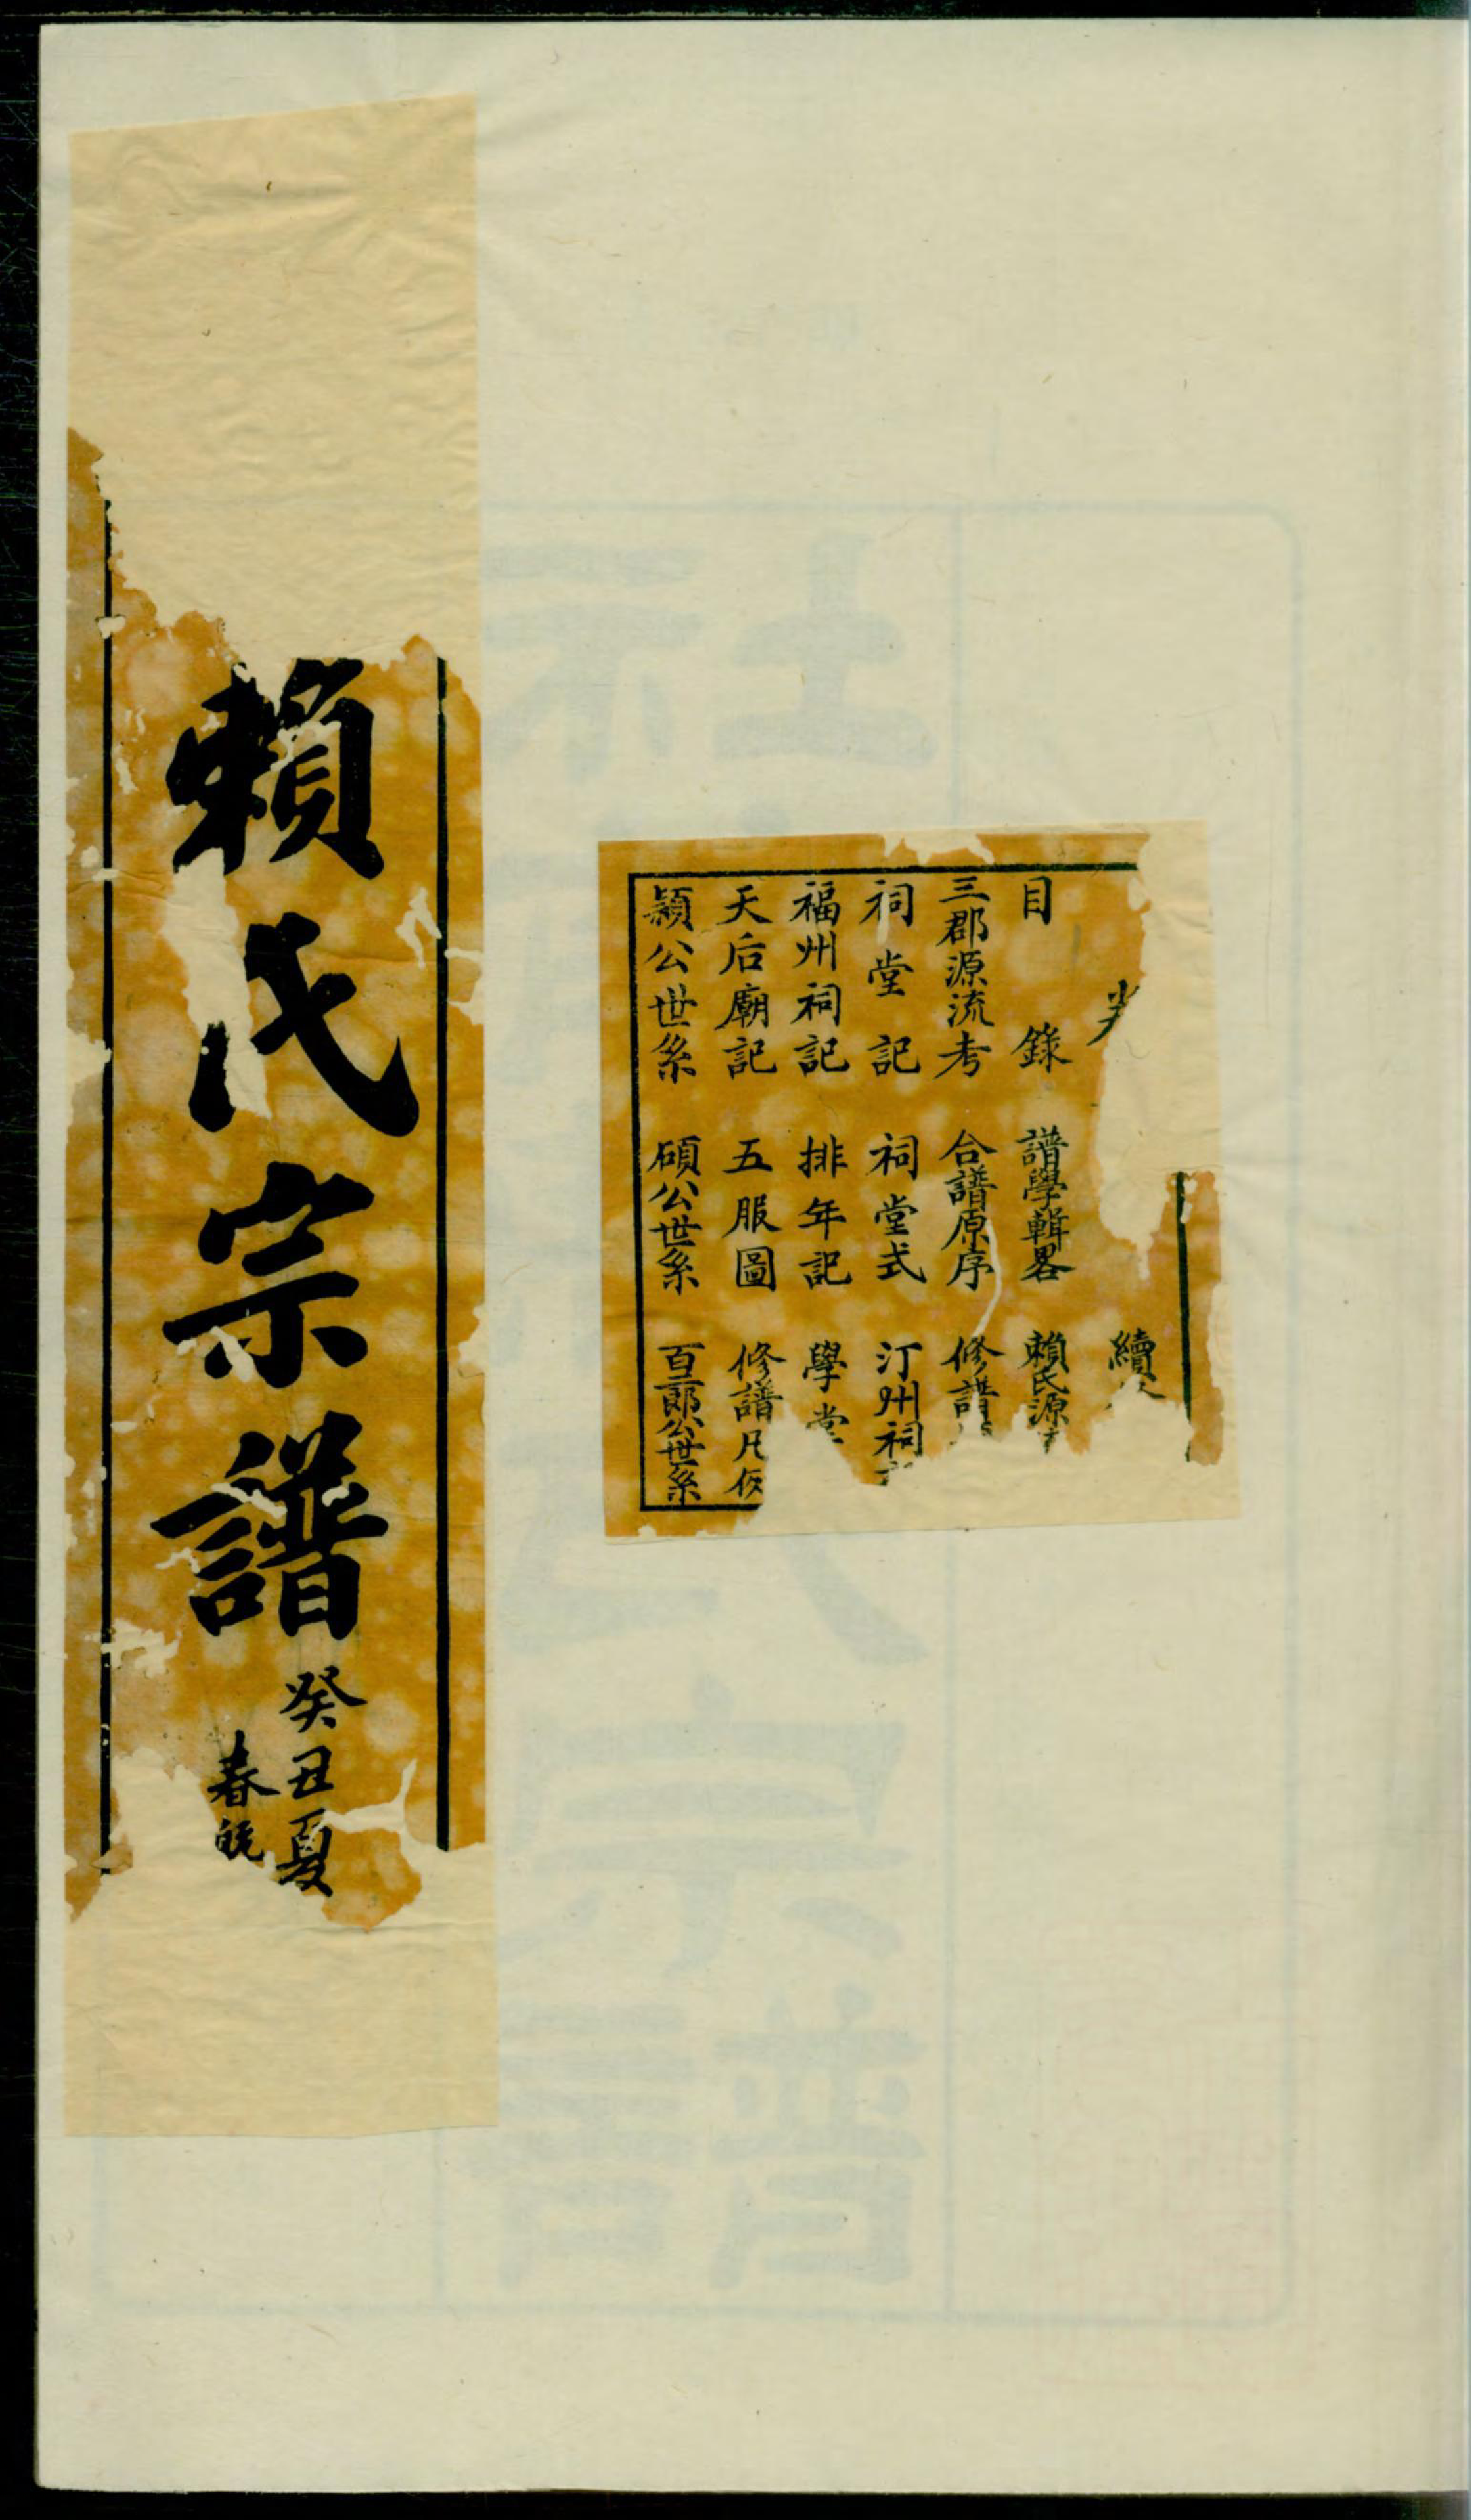 續
目錄 譜學輯畧 賴氏源
三郡源流考 合譜原序 修譜
祠堂記 祠堂式 汀州祠
福州祠記 排年記 學堂
天后廟記 五服圖 修譜凡
頴公世系 碩公世系 百郎公世系
賴氏宗譜
癸丑夏
春皖